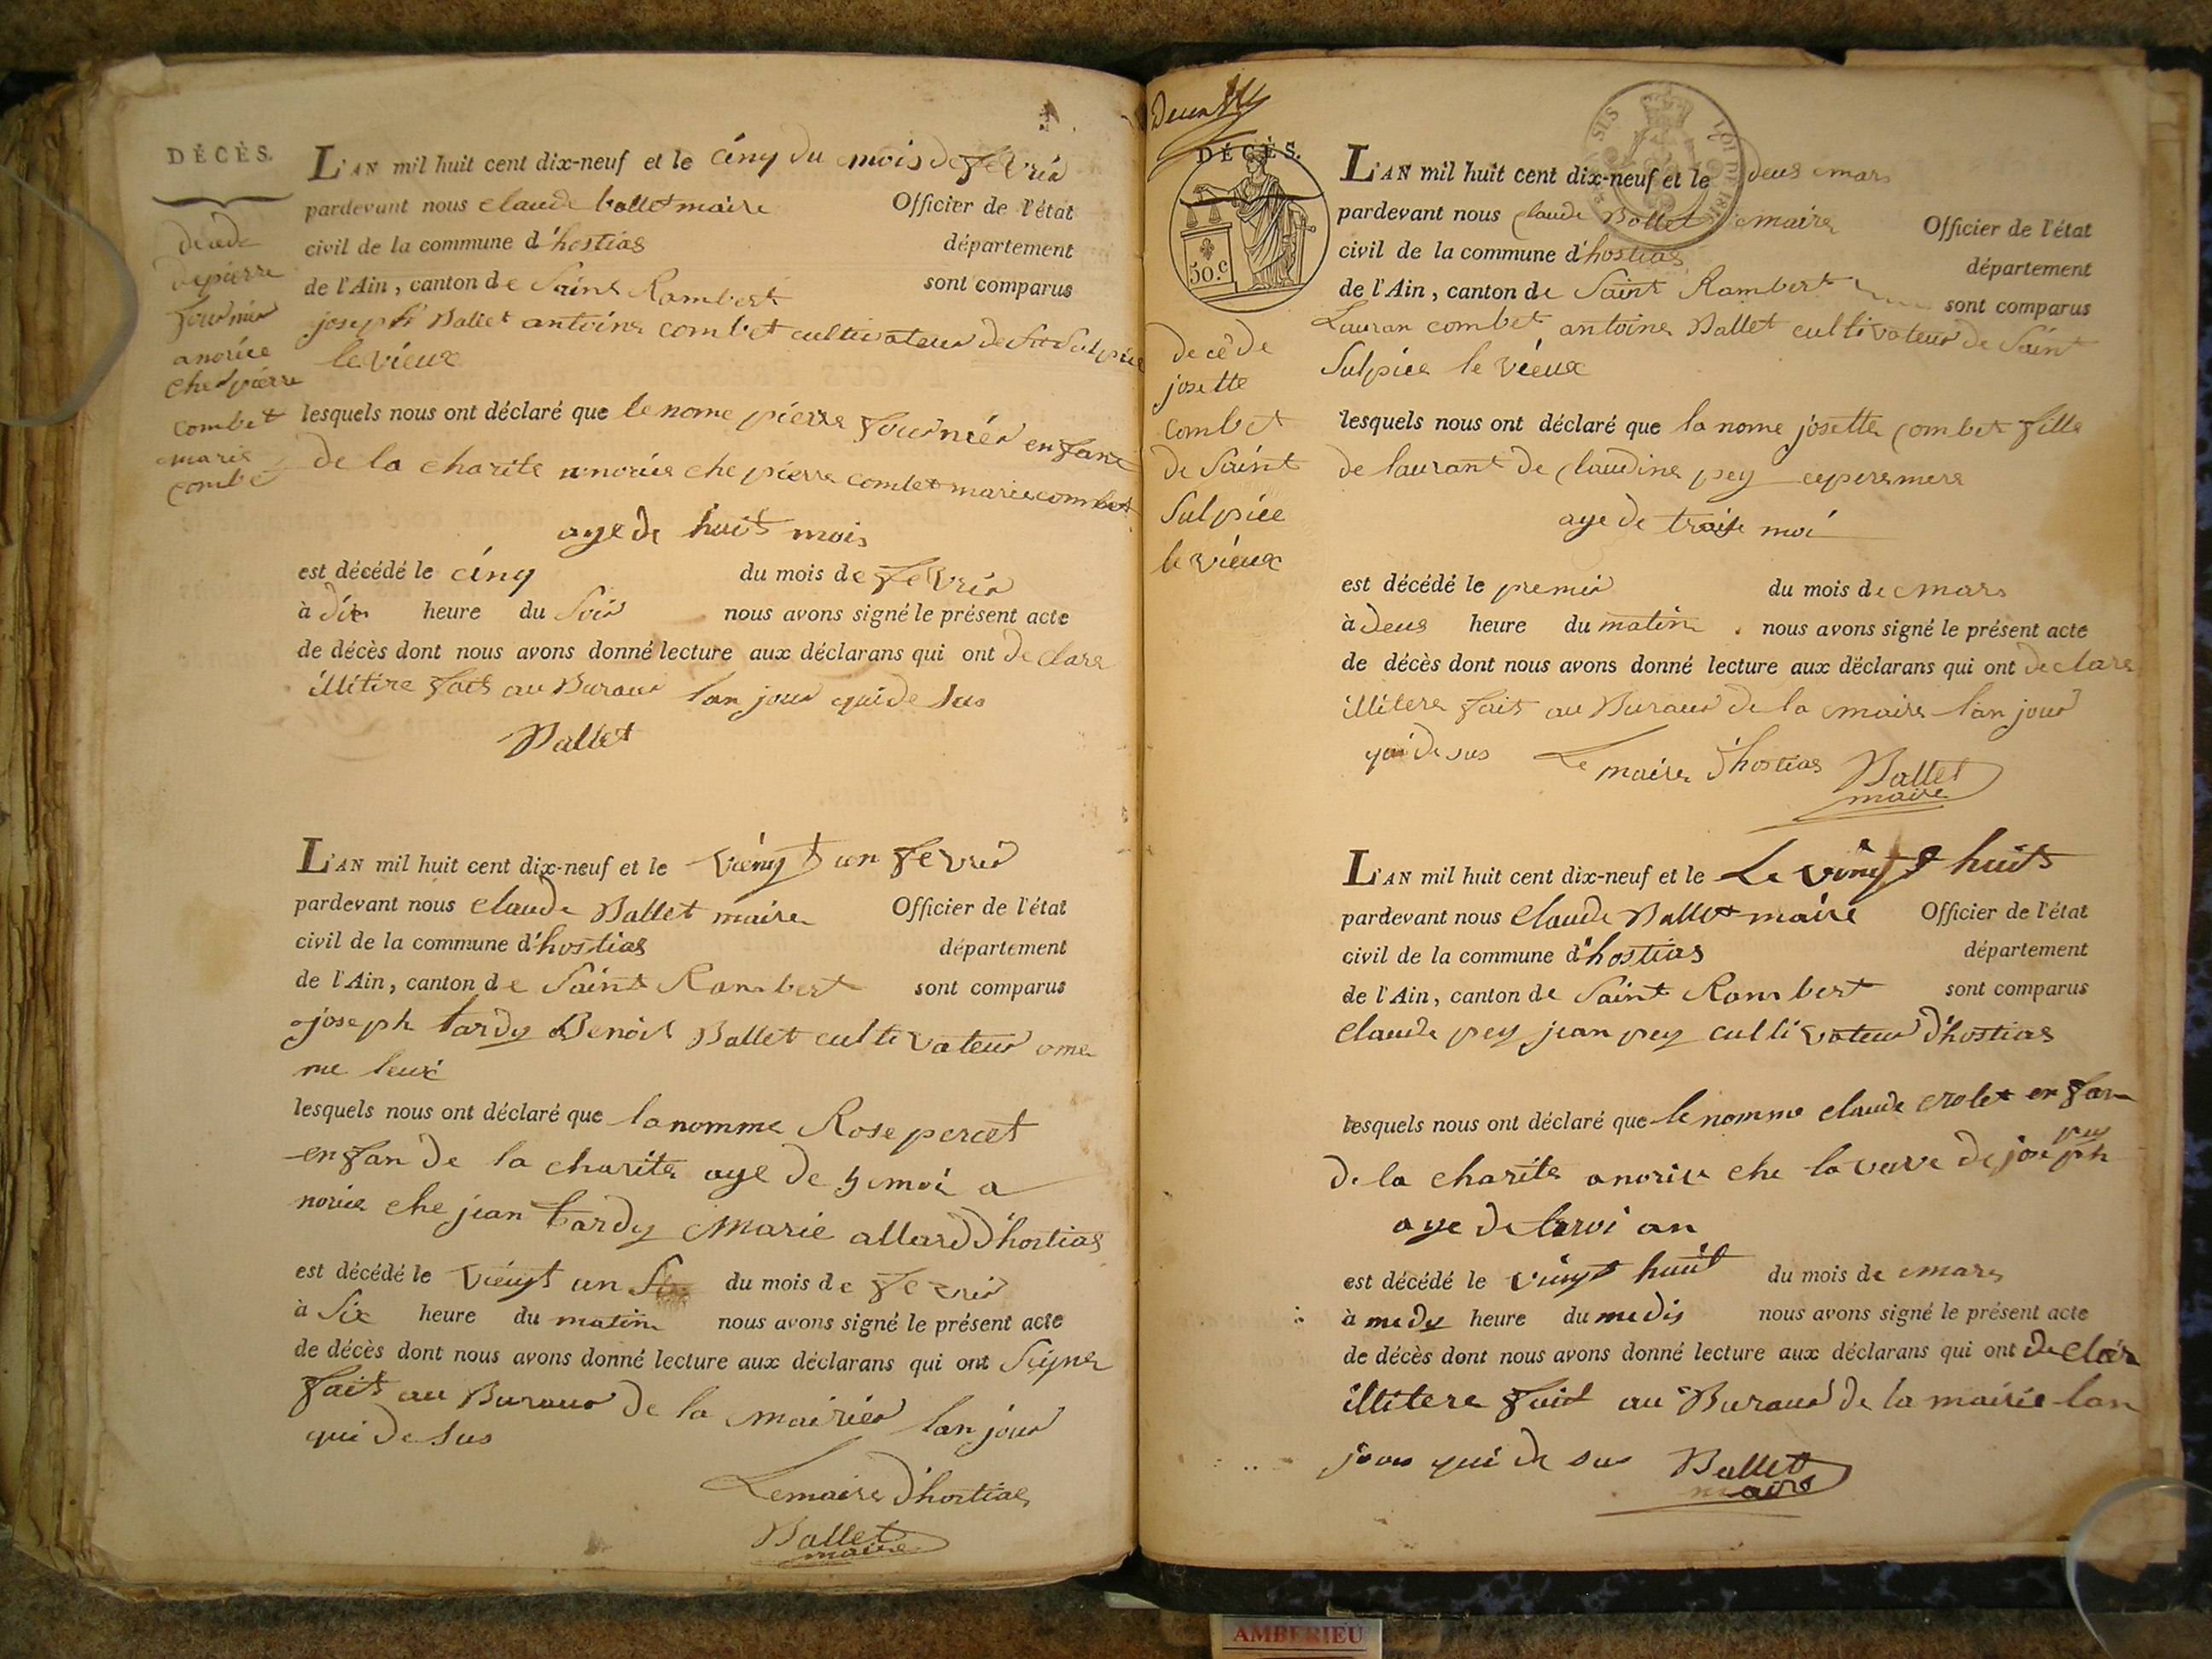 DÉCÈS.
decede
de pierre
fournier
anoriée
che pierre
combet
marie
combe
L'AN mil huit cent dix-neuf et le cinq du mois de fevrié
pardevant nous claude ballet maire Officier de l'état
civil de la commune d'hostias département
de l'Ain, canton de Saint Rambert sont comparus
joseph Ballet antoine combet cultivateur de St Sulpice
le vieux
lesquels nous ont déclaré que le nome pierre fournier enfant
de la charite anoriée che pierre combet marie combet
age de huit mois
est décédé le cinq du mois de fevrié
à dix heure du soir nous avons signé le présent acte
de décès dont nous avons donné lecture aux déclarans qui ont declare
illitire fait au Buraux lan jour qui de sus
Ballet
L'AN mil huit cent dix-neuf et le viengt un fevrié
pardevant nous claude Ballet maire Officier de l'état
civil de la commune d'hostias département
de l'Ain, canton de Saint Rambert sont comparus
joseph tardy Benoit Ballet cultivateur ome
me leux
lesquels nous ont déclaré que la nomme Rose percet
enfan de la charite age de 5 moi a
noriée che jean tardy Marie allard d'hostias
est décédé le viengt un du mois de fevrié
à Six heure du matin nous avons signé le présent acte
de décès dont nous avons donné lecture aux déclarans qui ont Signe
fait au Buraux de la mairies lan jour
qui de sus
Le maire d'hostias
Ballet
maire
DÉCÈS.
50.c
decede
josette
combet
de Saint
Sulpice
le vieux
L'AN mil huit cent dix-neuf et le deus mars
pardevant nous claude Ballet maire Officier de l'état
civil de la commune d'hostias département
de l'Ain, canton de Saint Rambert sont comparus
Lauran combet antoine Ballet cultivateur de Saint
Sulpice le vieux
lesquels nous ont déclaré que la nome josette combet fille
de laurant de claudine pey ceperemere
age de traise moi
est décédé le premier du mois de mars
à deus heure du matin . nous avons signé le présent acte
de décès dont nous avons donné lecture aux déclarans qui ont declare
illitere fait au Buraux de la maire lan jour
qui de sus Le maire d'hostias Ballet
maire
L'AN mil huit cent dix-neuf et le Le vingt huit
pardevant nous claude Ballet maire Officier de l'état
civil de la commune d'hostias département
de l'Ain, canton de Saint Rambert sont comparus
claude pey jean pey cultivateur d'hostias
lesquels nous ont déclaré que le nomme claude crolet enfan
pey
de la charite anorice che la veuve de joseph
age de troi an
est décédé le vingt huit du mois de mars
à medy heure du medis nous avons signé le présent acte
de décès dont nous avons donné lecture aux déclarans qui ont declar
illitere fait au Buraux de la mairie lan
jour qui de sus Ballet
maire
AMBERIEU